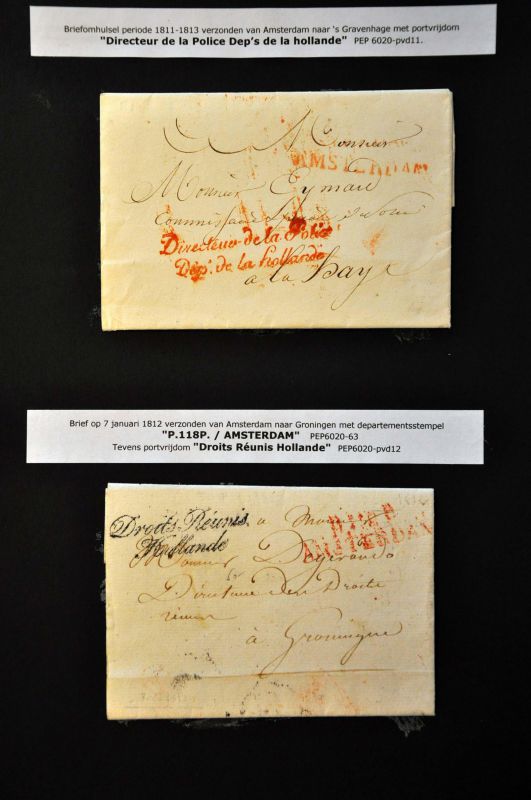 Briefomhulsel periode 1811-1813 verzonden van Amsterdam naar 's Gravenhage met portvrijdom
"Directeur de la Police Dep's de la hollande" PEP 6020-pvd11.
Monsieur
AMSTERDAM
Monsieur Eymard
Commissaire
Directeur de la Police
Dép.s de la hollande
a la haye
Brief op 7 januari 1812 verzonden van Amsterdam naar Groningen met departementsstempel
"P.118P. / AMSTERDAM" PEP6020-63
Tevens portvrijdom "Droits Réunis Hollande" PEP6020-pvd12
Droits Réunis
Hollande
a
P.118.P.
AMSTERDAM
Monsieur
Directeur des Droits
réunis
à Groningue